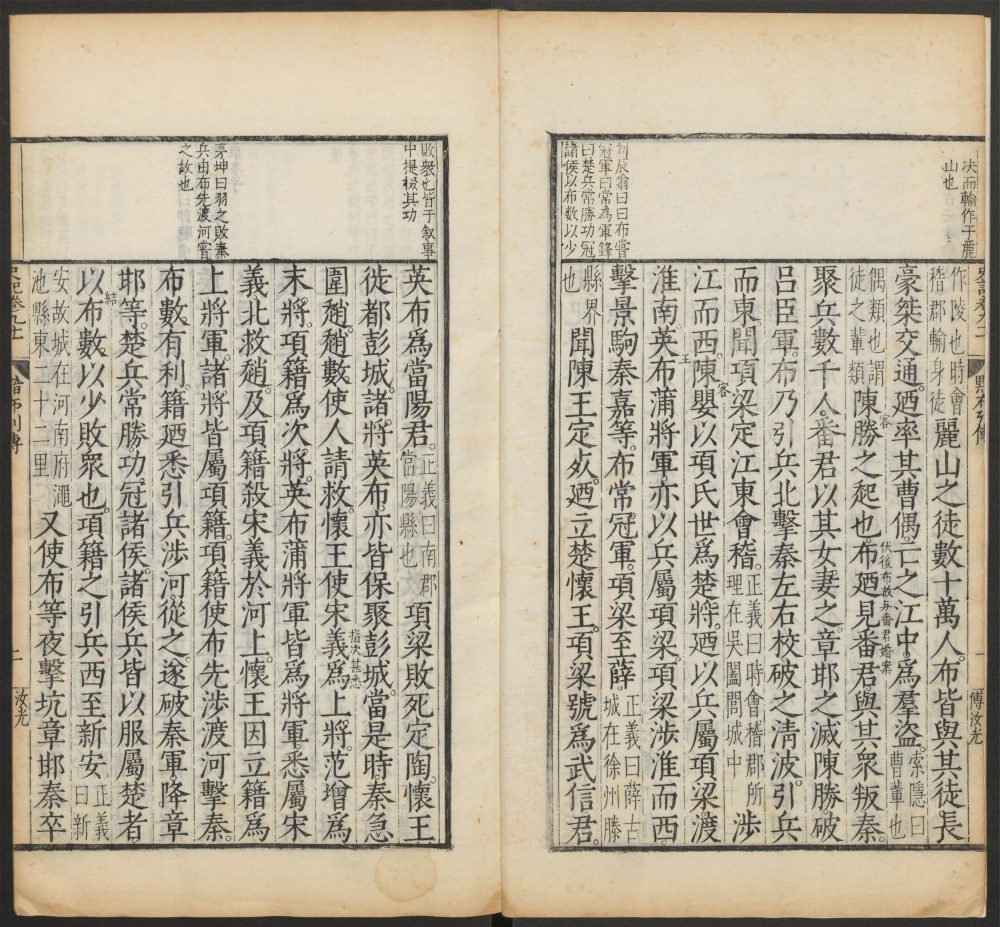 決而輸作于麗
山也
劉辰翁曰曰布嘗
冠軍曰常為軍鋒
曰楚兵常勝功冠
諸侯以布數以少
作陵也時會
稽郡輸身徒
麗山之徒數十萬人布皆與其徒長
豪桀交通廼率其曹偶亡之江中爲羣盜
索隱曰
曹輩也
偶類也謂
徒之輩類
陳勝之起也布廼見番君與其衆叛秦
客
伏後布故与番君婚案
聚兵數千人番君以其女妻之章邯之滅陳勝破
呂臣軍布乃引兵北擊秦左右校破之淸波引兵
而東聞項梁定江東會稽
正義曰時會稽郡所
理在吳闔閭城中
涉
江而西陳嬰以項氏世爲楚將廼以兵屬項梁渡
客
淮南英布蒲將軍亦以兵屬項梁項梁涉淮而西
王
擊景駒秦嘉等布常冠軍項梁至薛
正義曰薛古
城在徐州滕
縣界
也
聞陳王定死廼立楚懷王項梁號爲武信君
史記卷九十一
黥布列傳
一
傅汝光
敗衆也皆于叙事
中提掇其功
茅坤曰羽之敗秦
兵由布先渡河嘗
之故也
英布爲當陽君
正義曰南郡
當陽縣也
項梁敗死定陶懷王
徙都彭城諸將英布亦皆保聚彭城當是時秦急
圍稍稍數使人請救懷王使宋義爲上將范增爲
指次甚悉
末將項籍爲次將英布蒲將軍皆爲將軍悉屬宋
義北救稍及項籍殺宋義於河上懷王因立籍爲
上將軍諸將皆屬項籍項籍使布先涉渡河擊秦
布數有利籍廼悉引兵涉河從之遂破秦軍降章
邯等楚兵常勝功冠諸侯諸侯兵皆以服屬楚者
結
以布數以少敗衆也項籍之引兵西至新安
正義
曰新
安故城在河南府澠
池縣東二十二里
又使布等夜擊坑章邯秦卒
史記卷九十一
黥布列傳
二
汝光